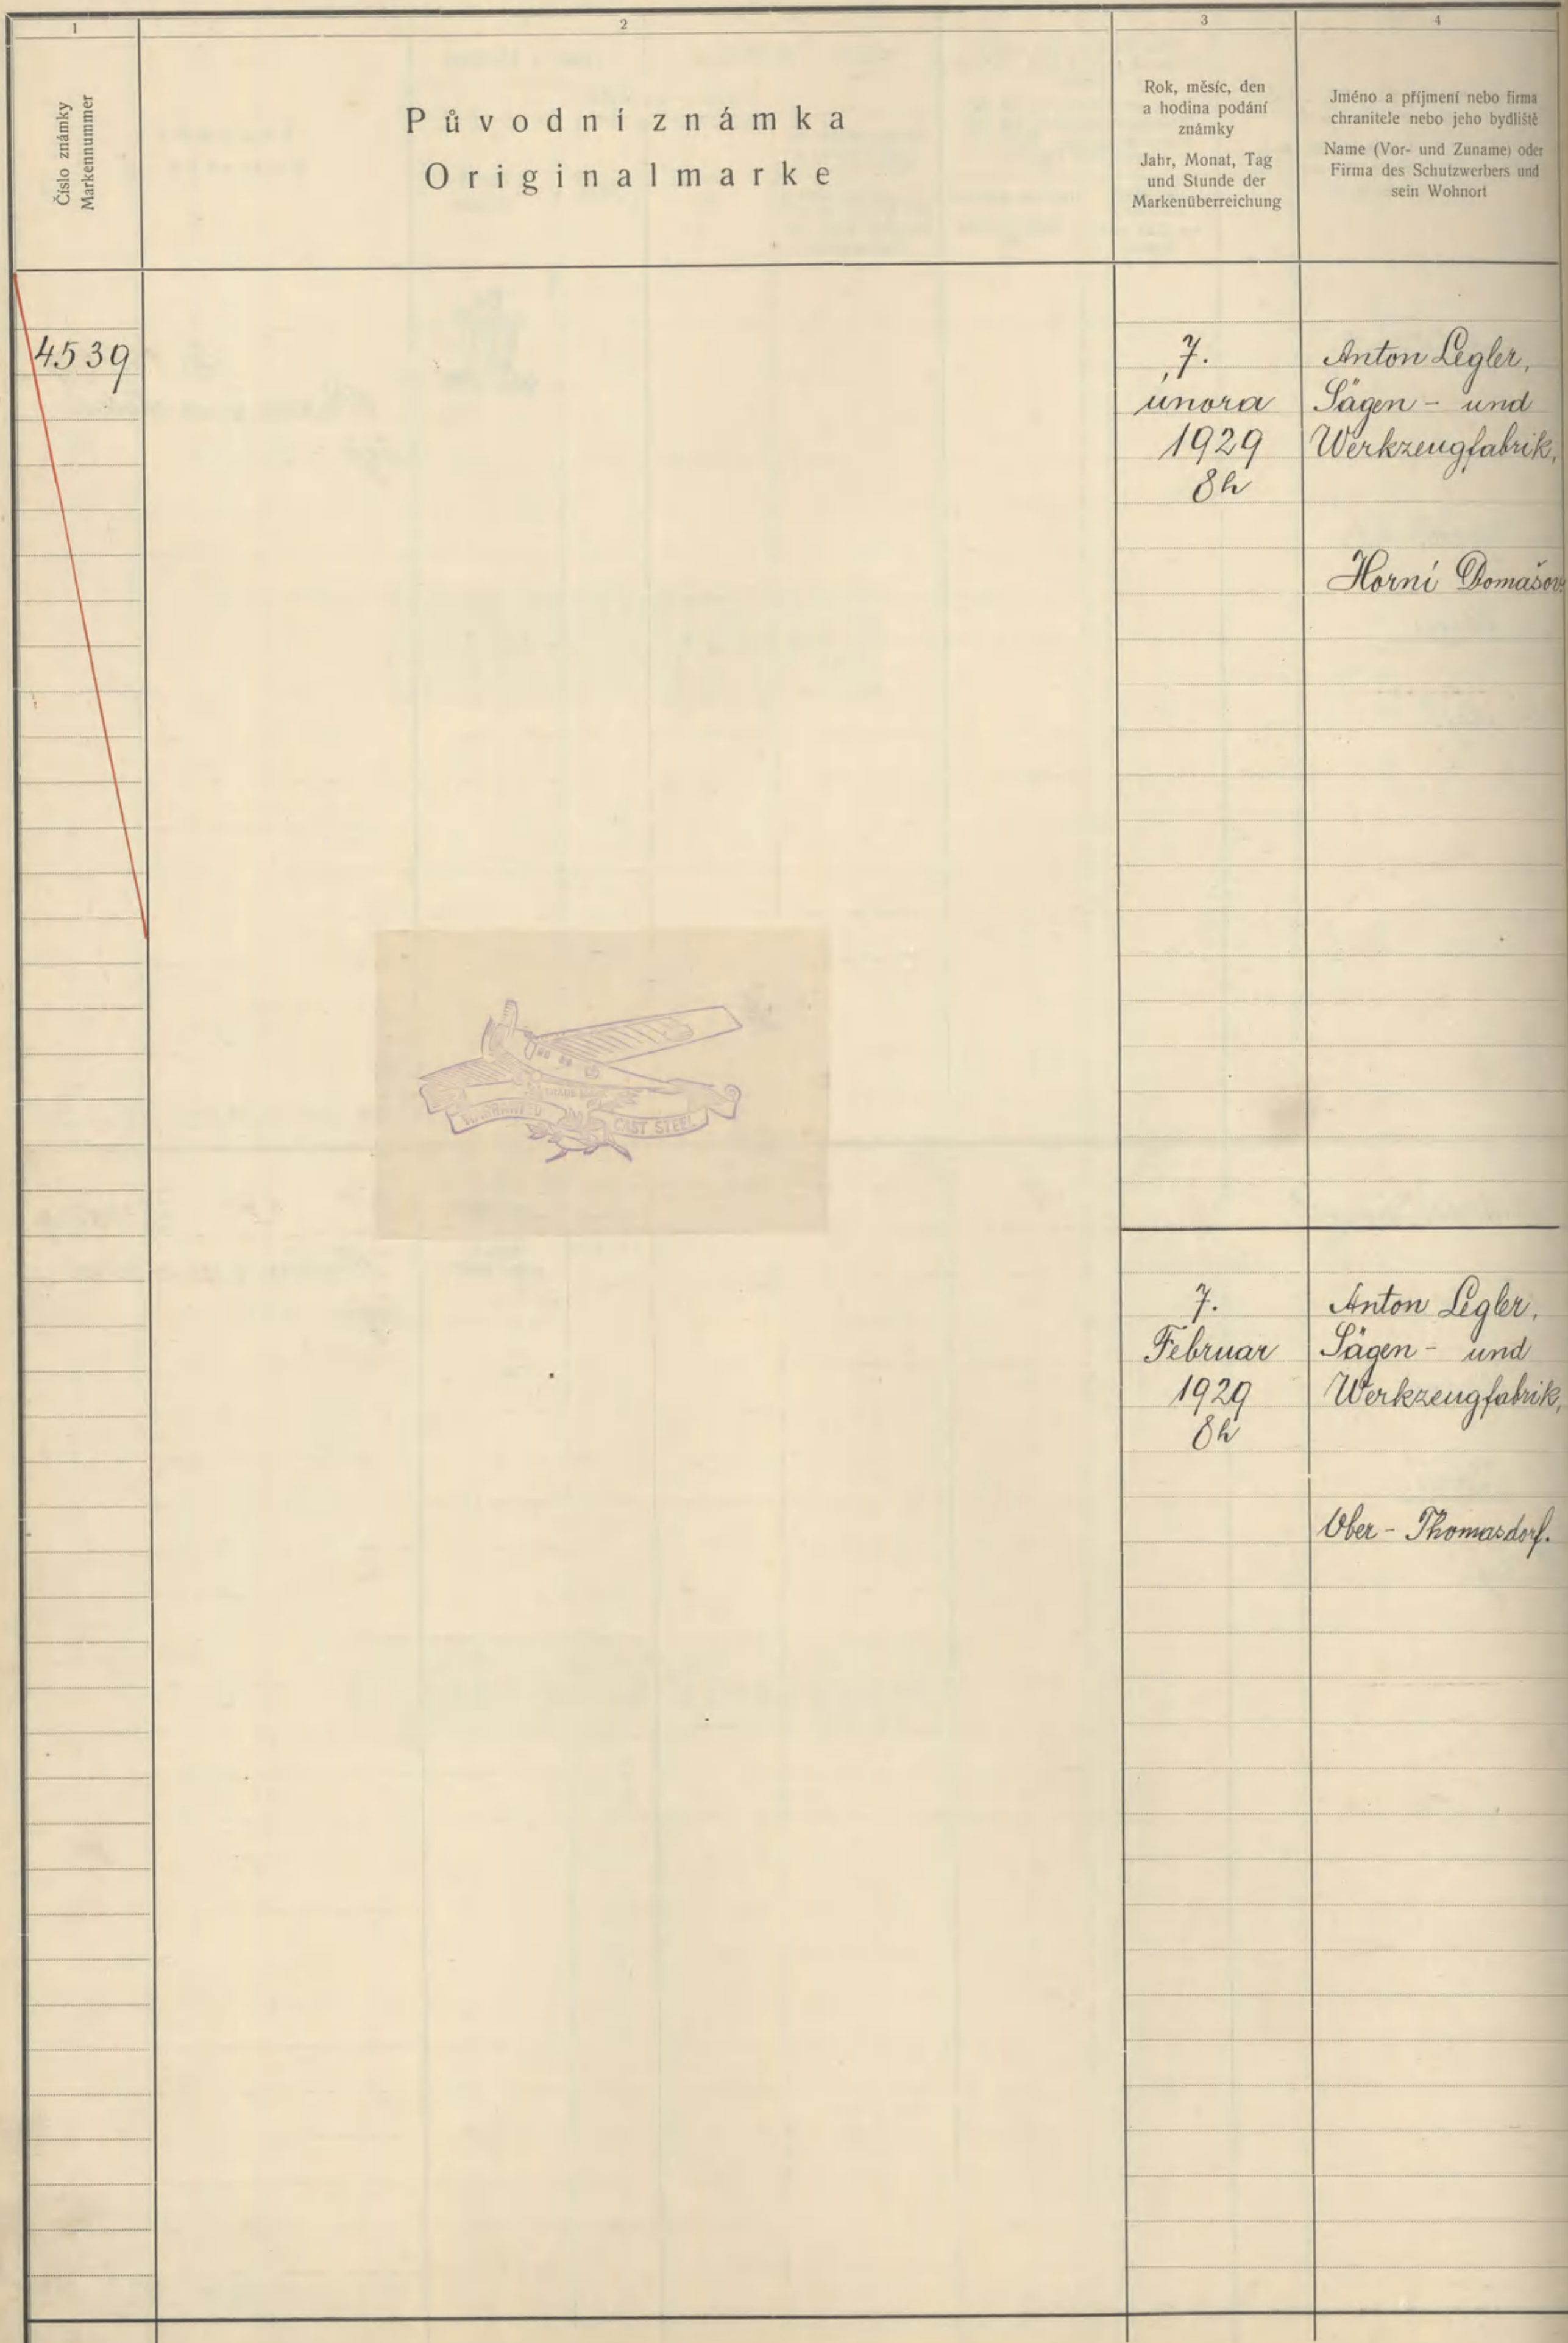 1
2
3
4
Číslo známky
Markennummer
Původní známka
Originalmarke
Rok, měsíc, den
a hodina podání
známky
Jahr, Monat, Tag
und Stunde der
Markenüberreichung
Jméno a příjmení nebo firma
chranitele nebo jeho bydliště
Name (Vor- und Zuname) oder
Firma des Schutzwerbers und
sein Wohnort
4539
7.
února
1929
8h
Anton Legler,
Sägen- und
Werkzeugfabrik,
Horní Domašov
CAST STEEL
7.
Februar
1929
8h
Anton Legler,
Sägen- und
Werkzeugfabrik,
Ober-Thomasdorf.